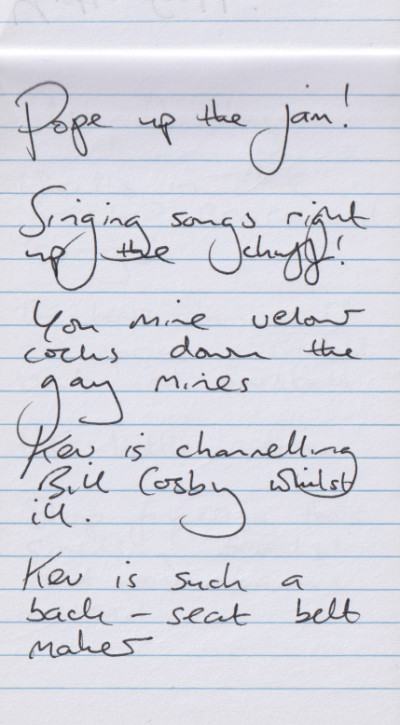 Pope up the jam!
Singing songs right
up the chuff!
You mine velour
cocks down the
gay mines
Kev is channelling
Bill Cosby whilst
ill.
Kev is such a
back-seat belt
maker